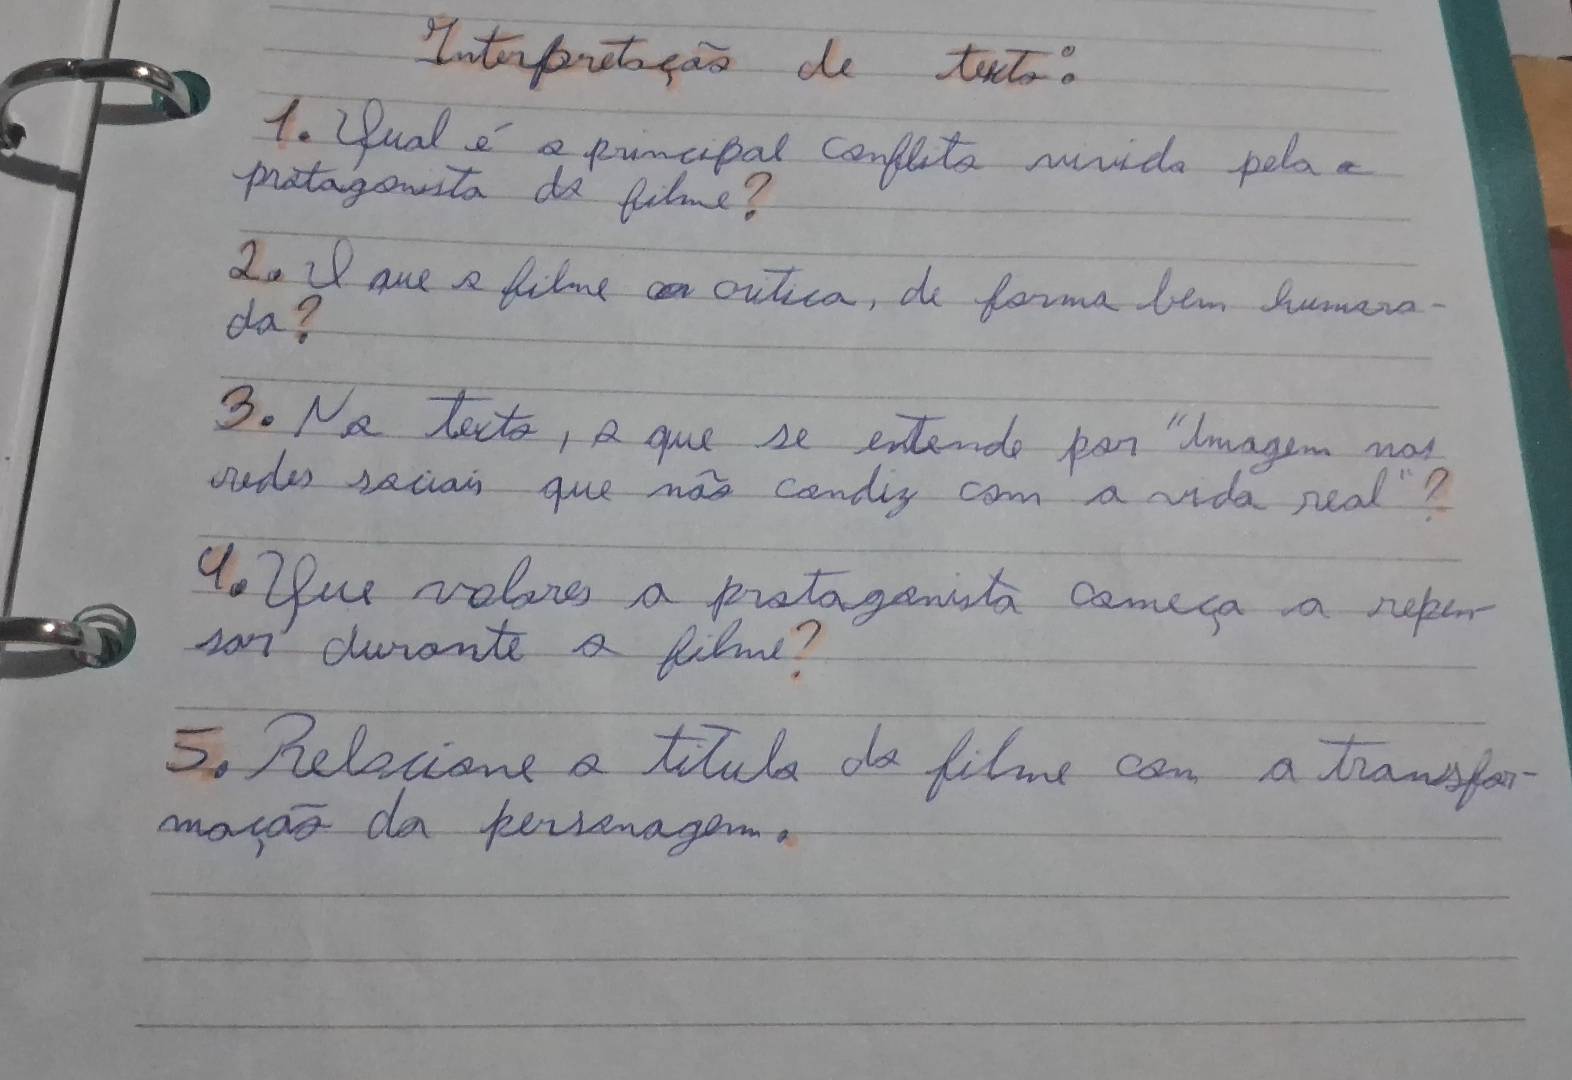 Interpretação de texto:
1. Qual é o principal conflito vivido pela
protagonista do filme?
2. O que o filme critica, de forma bem humora-
da?
3. No texto, o que se entende por "Imagem nas
redes sociais que não condiz com a vida real"?
4. Que valores a protagonista começa a repen-
sar durante o filme?
5. Relacione o título do filme com a transfor-
mação da personagem.